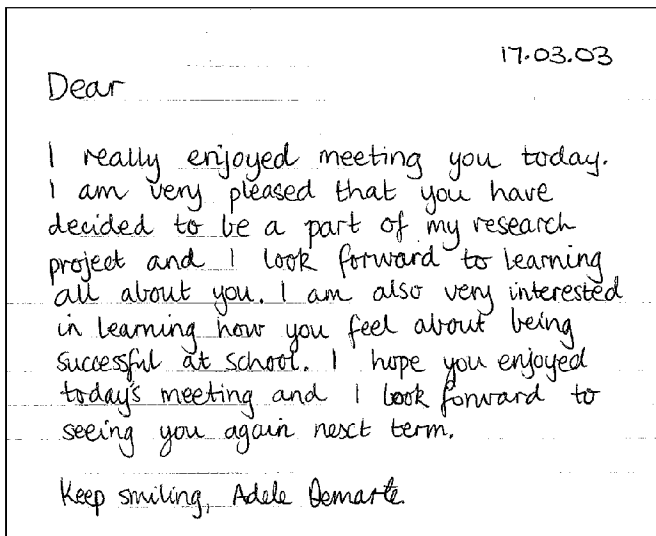 17.03.03
Dear
I really enjoyed meeting you today.
I am very pleased that you have
decided to be a part of my research
project and I look forward to learning
all about you. I am also very interested
in learning how you feel about being
successful at school. I hope you enjoyed
today's meeting and I look forward to
seeing you again next term.
Keep smiling, Adele Demarte